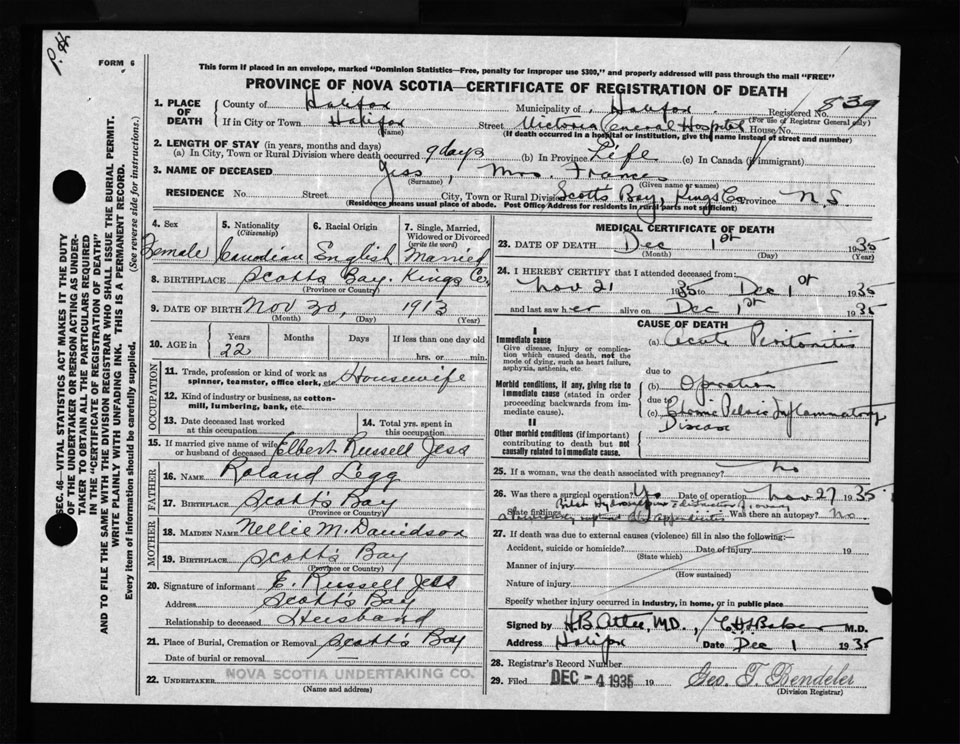 P. H.
FORM 6
This form if placed in an envelope, marked "Dominion Statistics—Free, penalty for improper use $300," and properly addressed will pass through the mail "FREE"
PROVINCE OF NOVA SCOTIA—CERTIFICATE OF REGISTRATION OF DEATH
1. PLACE OF DEATH County of Halifax Municipality of Halifax Registered No. 839
(For use of Registrar General only)
If in City or Town Halifax Street Victoria General Hospital House No.
(Name) (If death occurred in a hospital or institution, give the name instead of street and number)
2. LENGTH OF STAY (in years, months and days)
(a) In City, Town or Rural Division where death occurred 9 days (b) In Province Life (c) In Canada (if immigrant)
3. NAME OF DECEASED Jess, Mrs. Frances
(Surname) (Given name or names)
RESIDENCE No. Street City, Town or Rural Division Scotts Bay, Kings Co Province N S
(Residence means usual place of abode. Post Office Address for residents in rural parts not sufficient)
SEC. 46—VITAL STATISTICS ACT MAKES IT THE DUTY OF THE UNDERTAKER OR PERSON ACTING AS UNDERTAKER TO OBTAIN ALL THE PARTICULARS REQUIRED IN THE "CERTIFICATE OF REGISTRATION OF DEATH" AND TO FILE THE SAME WITH THE DIVISION REGISTRAR WHO SHALL ISSUE THE BURIAL PERMIT.
WRITE PLAINLY WITH UNFADING INK. THIS IS A PERMANENT RECORD.
Every item of information should be carefully supplied. (See reverse side for instructions.)
4. Sex 5. Nationality (Citizenship) 6. Racial Origin 7. Single, Married, Widowed or Divorced (write the word)
Female Canadian English Married
8. BIRTHPLACE Scotts Bay Kings Co.
(Province or Country)
9. DATE OF BIRTH Nov 30, 1913
(Month) (Day) (Year)
10. AGE Years Months Days If less than one day old
22 hrs. or min.
OCCUPATION
11. Trade, profession or kind of work as spinner, teamster, office clerk, etc. Housewife
12. Kind of industry or business, as cotton-mill, lumbering, bank, etc.
13. Date deceased last worked at this occupation 14. Total yrs. spent in this occupation
15. If married give name of wife or husband of deceased Elbert Russell Jess
FATHER
16. NAME Roland Legg
17. BIRTHPLACE Scott's Bay
(Province or Country)
MOTHER
18. MAIDEN NAME Nellie M. Davidson
19. BIRTHPLACE Scott's Bay
(Province or Country)
20. Signature of informant E. Russell Jess
Address Scotts Bay
Relationship to deceased Husband
21. Place of Burial, Cremation or Removal Scott's Bay
Date of burial or removal —
22. UNDERTAKER NOVA SCOTIA UNDERTAKING CO.
(Name and address)
MEDICAL CERTIFICATE OF DEATH
23. DATE OF DEATH Dec 1st 1935
(Month) (Day) (Year)
24. I HEREBY CERTIFY that I attended deceased from:
Nov 21 1935 to Dec 1st 1935
and last saw her alive on Dec 1st 1935
CAUSE OF DEATH
I
Immediate cause
Give disease, injury or complication which caused death, not the mode of dying, such as heart failure, asphyxia, asthenia, etc.
(a) Acute Peritonitis
due to
Morbid conditions, if any, giving rise to immediate cause (stated in order proceeding backwards from immediate cause).
(b) Operation
due to
(c) Chronic Pelvic Inflammatory Disease
II
Other morbid conditions (if important) contributing to death but not causally related to immediate cause.
25. If a woman, was the death associated with pregnancy? no
26. Was there a surgical operation? Yes Date of operation Nov 27 1935
State findings
Was there an autopsy? No
27. If death was due to external causes (violence) fill in also the following:—
Accident, suicide or homicide? Date of injury 19
(State which)
Manner of injury
(How sustained)
Nature of injury
Specify whether injury occurred in industry, in home, or in public place
Signed by H.B. Atlee, M.D. / C H L Baker M.D.
Address Halifax Date Dec 1 1935
28. Registrar's Record Number
29. Filed DEC -4 1935 19 Geo. F. Bendeler
(Division Registrar)